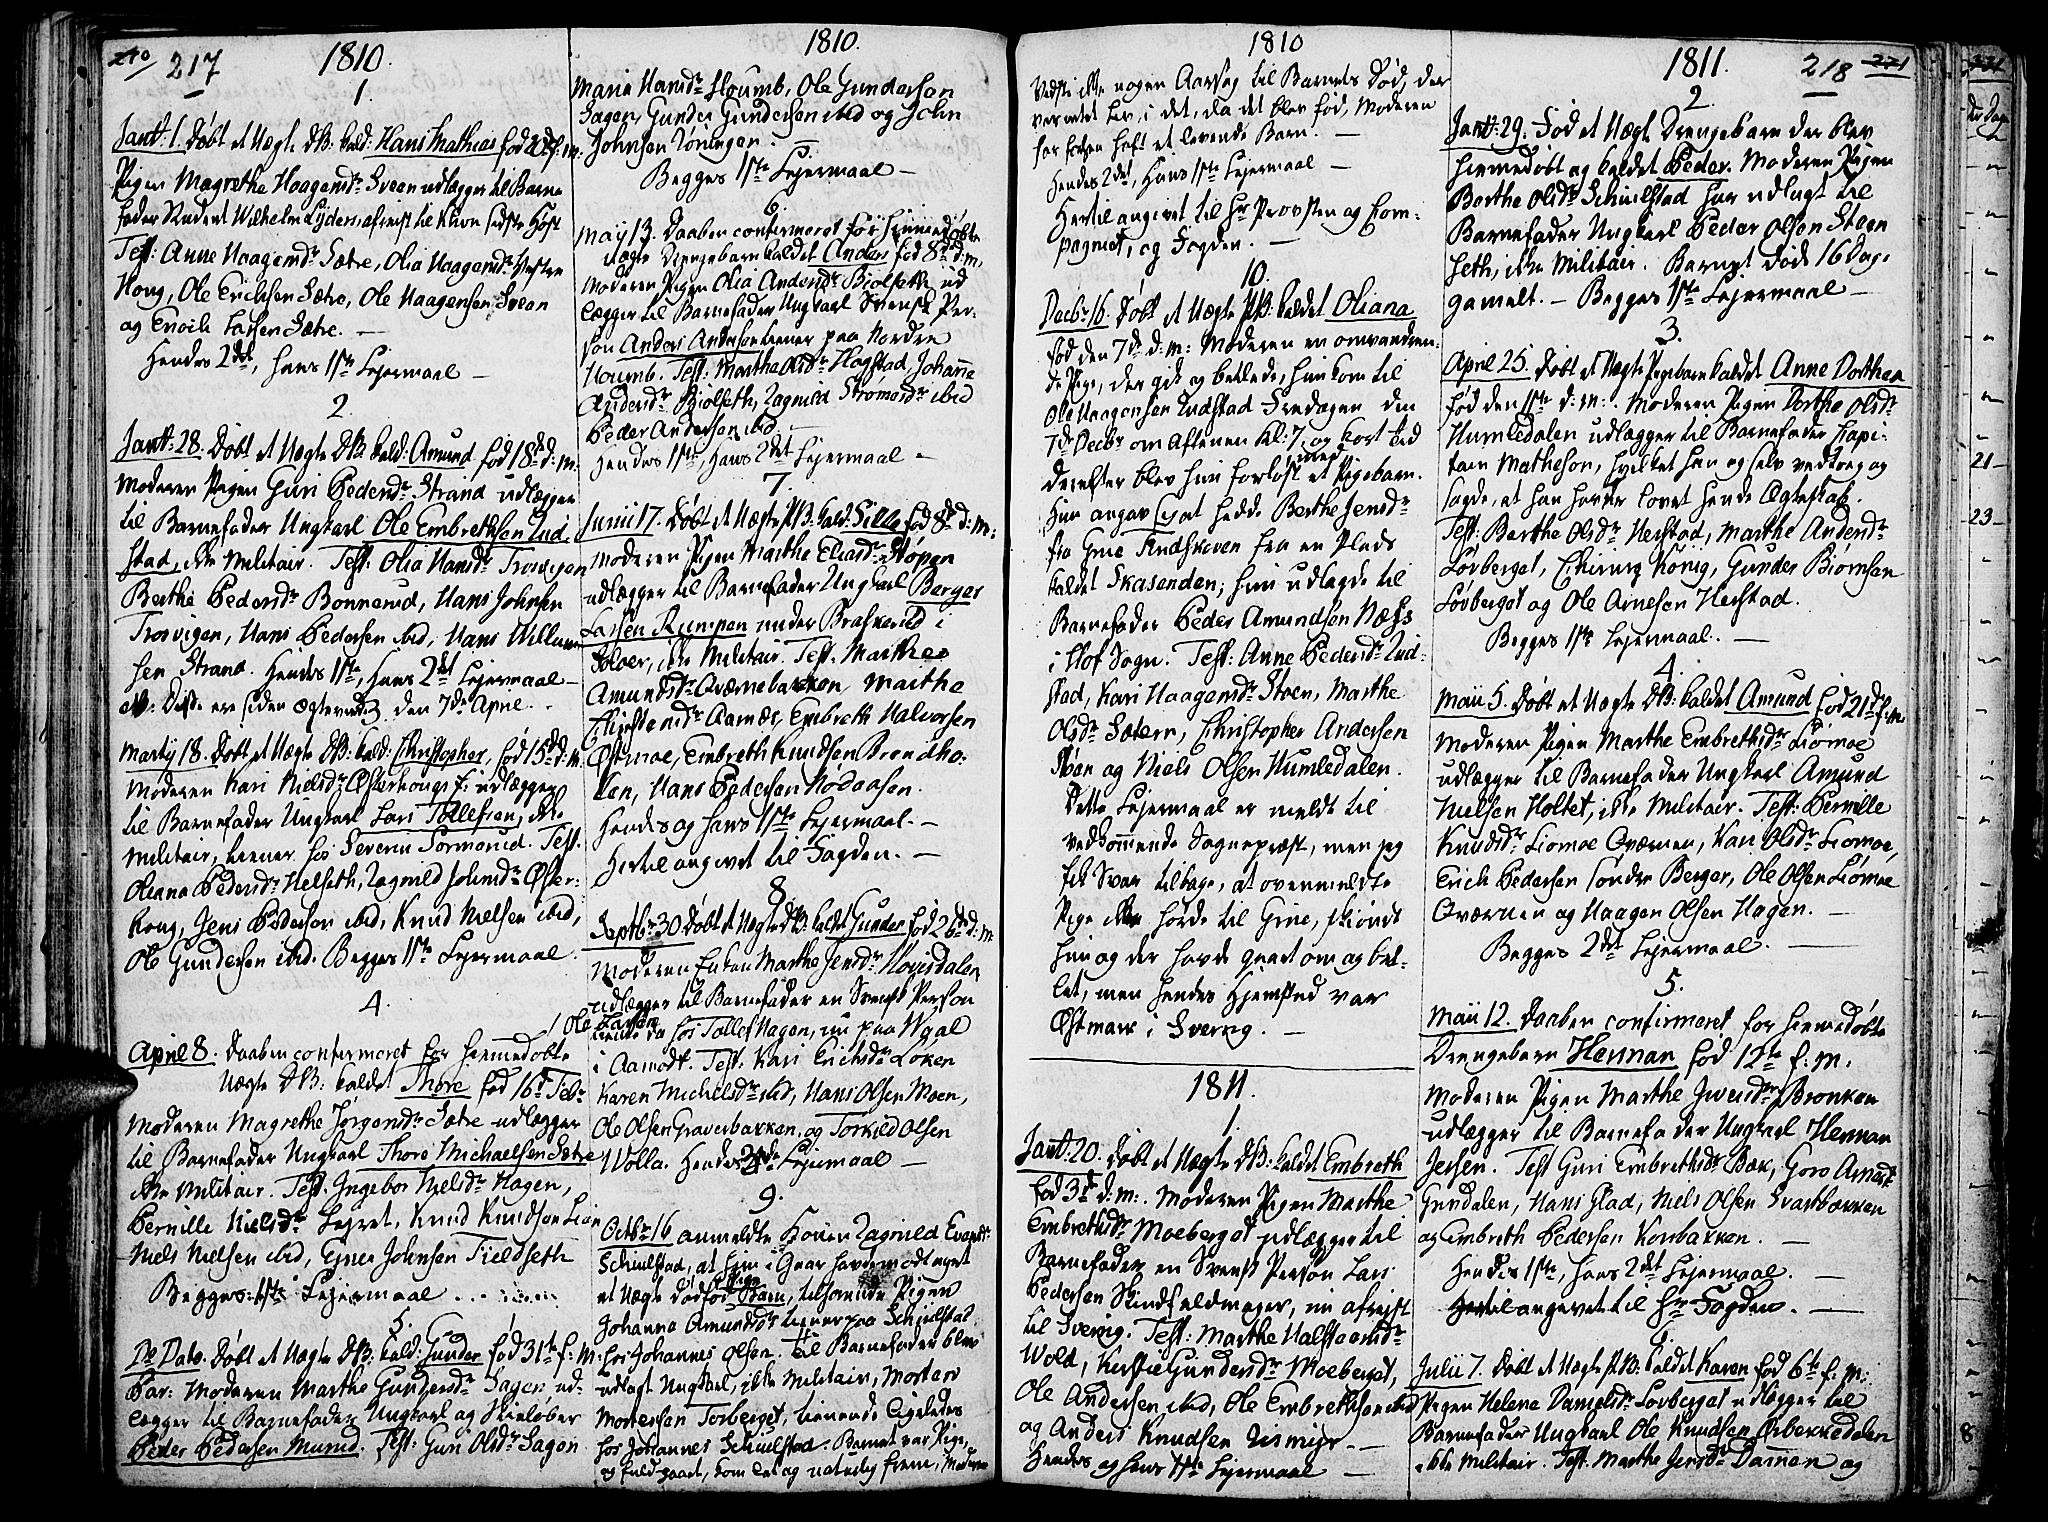 217
1810.
1.
Jan: 1. Døbt et Uægte DB: kald: Hans Mathias fød d: f: m:
Pigen Magrethe Haagensdr Sveen udlægger til Barne
fader Student Wilhelm Lyders, afreist til sidste Høst
Test: Anne Haagensdr Sætre, Olia Haagensdr Vestre
Hong, Ole Erichsen Sætre, Ole Haagensen Sveen
og Enoch Larsen Sætre. —
Hendes 2det, hans 1ste Lejermaal —
2.
Jan: 28. Døbt et Uægte DB. kald: Amund fød 18de d: m:
Moderen Pigen Guri Pedersdr Strand udlægger
til Barnefader Ungkarl Ole Embrethsen Lud-
stad, ikke Militair. Test: Olia Hansdr Trosvigen
Berthe Pedersdr Bonnerud, Hans Johnsen
Trosvigen, Hans Pedersen ibid, Hans Willum
sen Strand. Hendes 1ste, hans 2det Lejermaal —
Disse ere siden ægteviede den 7de April.
Martii 18. Døbt et Uægte DB: kald: Christopher, fød 15de d: m:
Moderen Kari Nielsdr Østerhong udlægger
til Barnefader Ungkarl Lars Tollefsen, ikke
Militair, tiener hos Severin Sormerud. Test.
Oleana Pedersdr Helseth, Ragnild Johnsdr Øster-
hong, Jens Pedersen ibid, Knud Nielsen ibid,
Ole Gundersen ibid. Begges 1ste Lejermaal.
4.
April 8. Daaben confirmeret for hiemmedøbte
Uægte DB: kaldet Thore fød 16de Febr
Moderen Magrethe Jørgensdr Sætre udlægger
til Barnefader Ungkarl Thore Michaelsen Sætre
ikke Militair. Test: Ingebor Nielsdr Hagen,
Pernille Nielsdr Lejret, Knud Knudsen Lien
Niels Nielsen ibid, Johnsen Fieldseth
Begges 1ste Lejermaal
5.
Do Dato. Døbt et Uægte DB. kald: Gunder fød 31te f: m:
Moderen Marthe Gundersdr Sagen ud-
lægger til Barnefader Ungkarl og Skieløber
Peder Pedersen Test: Guri Olsdr Sagen
1810.
Maria Hansdr Houmb, Ole Gundersen
Sagen, Gunder Gundersen ibid og John
Johnsen Røningen. —
Begges 1ste Lejermaal —
6.
May 13. Daaben confirmeret for hiemmedøbte
uægte Drengebarn kaldet Anders fød 8de d: m,
Moderen Pigen Olia Andersdr Biolseth ud
lægger til Barnefader Ungkarl Svensk Per-
son Anders Andersen tiener paa Nordre
Houmb. Test: Marthe Olsdr Hogstad, Johanne
Andersdr Biolseth, Ragnild Strømsdr ibid
Peder Andersen ibid. —
Hendes 1ste, Hans 2det Lejermaal —
7.
Junii 17. Døbt et Uægte PB. kald: Sille fød 8de d: m:
Moderen Pigen Marthe Eliasdr Støpen
udlægger til Barnefader Ungkarl Berger
Larsen Rumpen under Braskerud i
Soloer, ikke Militair. Test: Marthe
Amundsdr Qværnebakken, Marthe
Christiansdr Aarnæs, Embreth Halvorsen
Østmoe, Embreth Knudsen Brendho-
len, Hans Pedersen Nodaasen.
Hendes og hans 1ste Lejermaal. —
Hertil angivet til Fogden. —
8
Septbr 30 Døbt et Uægte DB: kaldet Gunder fød 26de d: m:
Moderen Enken Marthe Jensdr Hovisdalen
udlægger til Barnefader en Svensk Person
Ole Larsen
tiente da hos Tollef Hagen, nu paa Waal
i Aamodt. Test: Kari Erichsdr Løken
Karen Michelsdr ibid, Hans Olsen Moen,
Ole Olsen Graverbakken, og Torkild Olsen
Wolla. Hendes 2de Lejermaal —
9.
Octbr 16 anmeldte Konen Ragnild Evensdr
Schiulstad, at hun i Gaar havde modtaget
et Uægte dødfød Barn, tilhørende Pigen
Johanna Amundsdr tiener paa Schiulstad
hos Johannes Olsen. Til Barnefader blev
udlagt Ungkarl, ikke Militair, Morten
Mortensen Torberget, tienende ligeledes
hos Johannes Schiulstad. Barnet var Pige,
og fuld-gaaet, kom let og naturlig frem, Moderen
1810
Vidste ikke nogen Aarsag til Barnets Død, der
var intet Liv i det, da det blev fød, Moderen
har forhen haft et levende Barn. —
Hendes 2det, Hans 1ste Lejermaal —
Hertil angivet til Hr Provsten og Com-
pagniet, og Fogden. —
10.
Decbr 16. Døbt et Uægte PB: kaldet Oliana
fød den 7de d: m: Moderen en omvandren-
de Pige, der gik og betlede, hun kom til
Ole Haagensen Ludstad Fredagen den
7de Decbr om Aftenen Kl: 7, og kort Tid
derefter blev hun forløst med et Pigebarn.
Hun angav sig at hedde Berthe Jensdr
fra Grue Findskoven fra en Plads
kaldet Skasenden; hun udlagde til
Barnefader Peder Amundsen Næss
i Hof Sogn. Test: Anne Pedersdr Lud-
stad, Kari Haagensdr Stoen, Marthe
Olsdr Sætern, Christopher Andersen
Støen og Niels Olsen Humledalen.
Dette Lejermaal er meldt til
vedkommende Sognepræst, men jeg
fik Svar tilbage, at ovenmeldte
Pige ikke hørde til Grue, skiønt
hun og der havde gaaet om og bet-
let, men hendes Hjemsted var
Østmark i Sverrig. —
1811.
1.
Jan: 20. Døbt et Uægte DB: kaldet Embreth
fød 3de d: m:. Moderen Pigen Marthe
Embrethsdr Moeberget udlægger til
Barnefader en Svensk Person Lars
Pedersen Skindfeldmager, nu afrejst
til Sverrig. Test: Marthe Halstensdr
Wold, Kirstie Gundersdr Moeberget,
Ole Andersen ibid, Ole Embrethsen ibid
og Anders Knudsen Rismyr. —
Hendes og hans 1ste Lejermaal —
1811.
218
2.
Jan: 29. Fød et Uægte Drengebarn der blev
hiemmedøbt og kaldet Peder. Moderen Pigen
Berthe Olsdr Schiulstad har udlagt til
Barnefader Ungkarl Peder Olsen Steen
seth, ikke Militair. Barnet døde 16 Dage
gammelt. — Begges 1ste Lejermaal —
3.
April 25. Døbt et Uægte Pigebarn kaldet Anne Dorthea
fød den 1ste d: m:. Moderen Pigen Dorthe Olsdr
Humledalen udlægger til Barnefader Capi-
tain Matheson, hvilket han og selv vedtog og
sagde, at han havde lovet hende Ægteskab.
Test: Berthe Olsdr Herstad, Marthe Andersdr
Løvberget, Chirurg König, Gunder Biørnsen
Løvberget og Ole Arnesen Herstad.
Begges 1ste Lejermaal. —
4.
Maii 5. Døbt et Uægte DB: kaldet Amund fød 21de f: m:
Moderen Pigen Marthe Embrethsdr Liomoe
udlægger til Barnefader Ungkarl Amund
Nielsen Holtet, ikke Militair. Test: Pernille
Knudsdr Liomoe Qværnen, Kari Olsdr Liomoe,
Erich Pedersen Søndre Berger, Ole Olsen Liomoe
Qværnen og Haagen Olsen Hagen. —
Begges 2det Lejermaal. —
5.
Maii 12. Daaben confirmeret for hiemmedøbte
Drengebarn Herman fød 12te f. m.
Moderen Pigen Marthe Iversdr Bronken
udlægger til Barnefader Ungkarl Herman
Jensen. Test Guri Embrethsdr Bæk, Goro Arnesdr
Gundalen, Hans Stad, Niels Olsen Svartbækken
og Embreth Pedersen Kornbakken. —
Hendes 1ste, hans 2det Lejermaal. —
Hertil angivet til Hr Fogden. —
6.
Julii 7. Døbt et Uægte PB: kaldet Karen fød 6te f: m:
Pigen Helene Danielsdr Løvberget udlægger til
Barnefader Ungkarl Ole Knudsen Ørbekkedalen
ikke Militair. Test. Marthe Jensdr Dæmen og
21
23
8